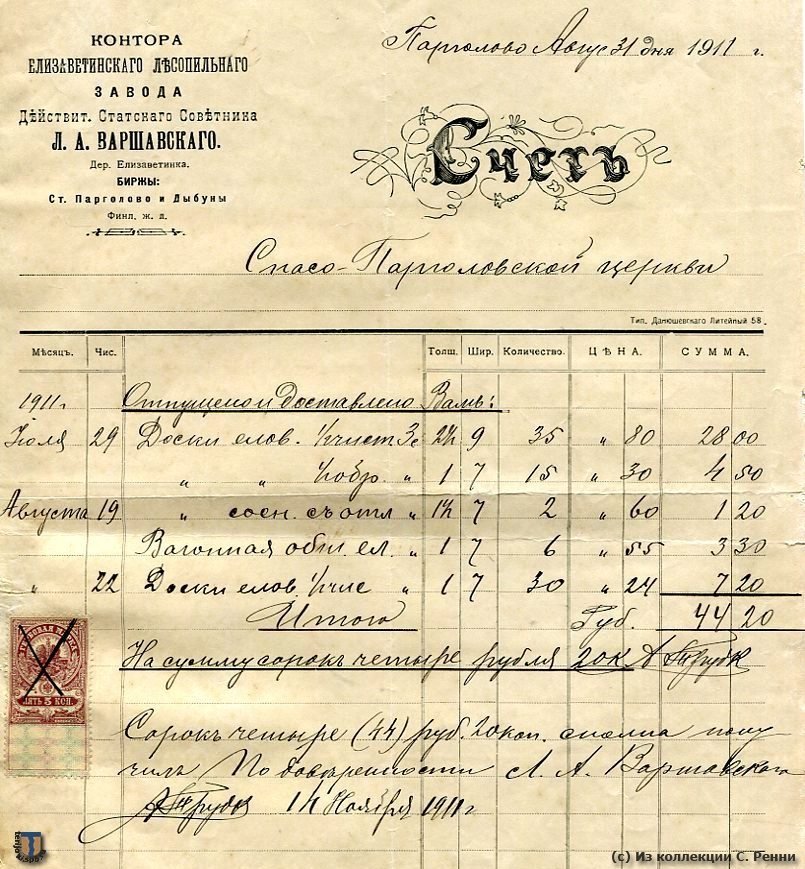 КОНТОРА
ЕЛИЗАВЕТИНСКАГО ЛѢСОПИЛЬНАГО
ЗАВОДА
Дѣйствит. Статскаго Совѣтника
Л. А. ВАРШАВСКАГО.
Дер. Елизаветинка.
БИРЖЫ:
Ст. Парголово и Дыбуны
Финл. ж. д.
Парголово Авгус 31 дня 1911 г.
Счетъ
Спасо-Парголовской церкви
Тип. Данюшевскаго Литейный 58.
Мѣсяцъ. Чис. Толщ. Шир. Количество. ЦѢНА. СУММА.
1911 г. Отпущено и доставлено Вамъ:
Іюля 29 Доски елов. 1/чист 3с 2½ 9 35 „ 80 28 00
„ „ 1 7 15 „ 30 4 50
Августа 19 „ сосн. съ отл „ 1½ 7 2 „ 60 1 20
Вагонная обш. ел. „ 1 7 6 „ 55 3 30
„ 22 Доски елов. 1/чис „ 1 7 30 „ 24 7 20
Итого Руб. 44 20
На сумму сорокъ четыре рубля 20 к А Трубк
ГЕРБОВАЯ МАРКА
ПЯТЬ 5 КОП.
Сорокъ четыре (44) руб. 20 коп. сполна полу
чилъ По довѣренности Л. А. Варшавскаго
14 Ноября 1911 г
terijoki.spb.ru
(c) Из коллекции С. Ренни